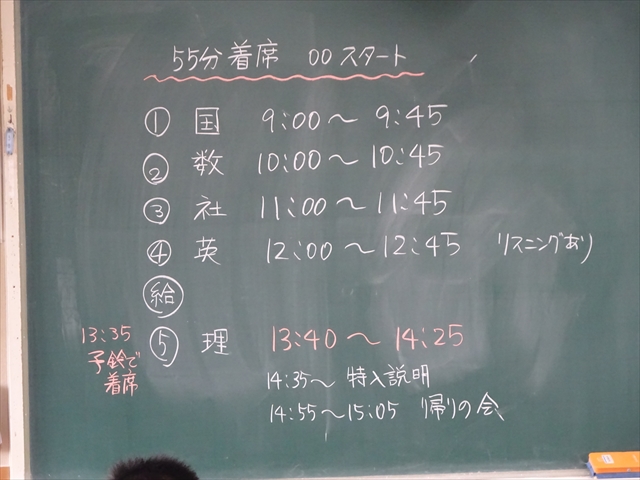 55分着席 00スタート
① 国 9:00～9:45
② 数 10:00～10:45
③ 社 11:00～11:45
④ 英 12:00～12:45 リスニングあり
給
⑤ 理 13:40～14:25
13:35
予鈴で
着席
14:35～ 特入説明
14:55～15:05 帰りの会